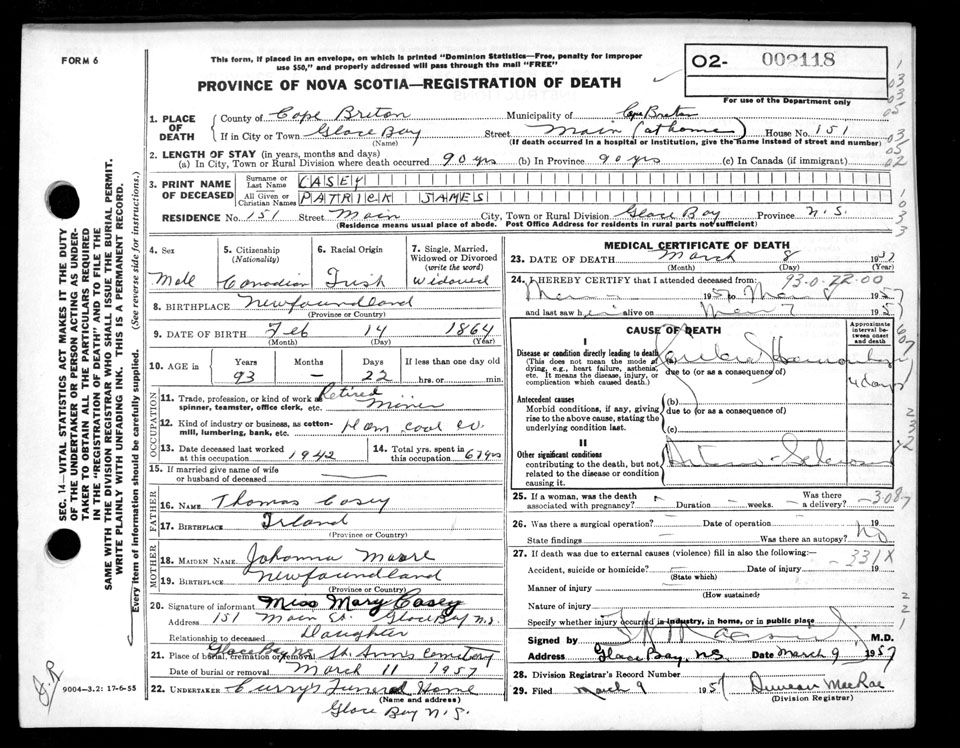 FORM 6
This form, if placed in an envelope, on which is printed "Dominion Statistics—Free, penalty for improper
use $50," and properly addressed will pass through the mail "FREE"
PROVINCE OF NOVA SCOTIA—REGISTRATION OF DEATH
02- 002118
For use of the Department only
1. PLACE OF DEATH
County of Cape Breton Municipality of Cape Breton
If in City or Town Glace Bay Street Main (at home) House No. 151
(Name) (If death occurred in a hospital or institution, give the name instead of street and number)
2. LENGTH OF STAY (in years, months and days)
(a) In City, Town or Rural Division where death occurred 90 yrs (b) In Province 90 yrs (c) In Canada (if immigrant)
3. PRINT NAME OF DECEASED
Surname or Last Name CASEY
All Given or Christian Names PATRICK JAMES
RESIDENCE No. 151 Street Main City, Town or Rural Division Glace Bay Province N.S.
(Residence means usual place of abode. Post Office Address for residents in rural parts not sufficient)
4. Sex
Male
5. Citizenship
(Nationality)
Canadian
6. Racial Origin
Irish
7. Single, Married, Widowed or Divorced
(write the word)
Widowed
8. BIRTHPLACE Newfoundland
(Province or Country)
9. DATE OF BIRTH Feb 14 1864
(Month) (Day) (Year)
10. AGE in Years Months Days If less than one day old
93 — 22 hrs. or min.
OCCUPATION
11. Trade, profession, or kind of work as spinner, teamster, office clerk, etc. Retired Miner
12. Kind of industry or business, as cotton-mill, lumbering, bank, etc. Dom. Coal Co.
13. Date deceased last worked at this occupation 1942
14. Total yrs. spent in this occupation 67 yrs
15. If married give name of wife or husband of deceased
FATHER
16. Name Thomas Casey
17. Birthplace Irland
(Province or Country)
MOTHER
18. Maiden Name Johanna Moore
19. Birthplace Newfoundland
(Province or Country)
20. Signature of informant Miss Mary Casey
Address 151 Main St. Glace Bay N.S.
Relationship to deceased Daughter
21. Place of burial, cremation or removal Glace Bay NS St. Anns Cemetery
Date of burial or removal March 11 1957
22. Undertaker Curry's Funeral Home
(Name and address)
Glace Bay N.S.
MEDICAL CERTIFICATE OF DEATH
23. DATE OF DEATH March 8 1957
(Month) (Day) (Year)
24. I HEREBY CERTIFY that I attended deceased from: 93-0-22-00
1957 to 1957
and last saw h alive on 1957
CAUSE OF DEATH
Approximate interval between onset and death
I
Disease or condition directly leading to death
(This does not mean the mode of dying, e.g., heart failure, asthenia, etc. It means the disease, injury, or complication which caused death.)
Hemorrhage
due to (or as a consequence of)
4 days
Antecedent causes
Morbid conditions, if any, giving rise to the above cause, stating the underlying condition last.
(b)
due to (or as a consequence of)
(c)
II
Other significant conditions
contributing to the death, but not related to the disease or condition causing it.
25. If a woman, was the death associated with pregnancy? - Duration weeks. Was there a delivery?
26. Was there a surgical operation? Date of operation 19
State findings Was there an autopsy? No
27. If death was due to external causes (violence) fill in also the following:— 331X
Accident, suicide or homicide? Date of injury 19
(State which)
Manner of injury
(How sustained)
Nature of injury
Specify whether injury occurred in industry, in home, or in public place
Signed by M.D.
Address Glace Bay, N.S. Date March 9 1957
28. Division Registrar's Record Number
29. Filed March 9 1957 Duncan MacRae
(Division Registrar)
SEC. 14—VITAL STATISTICS ACT MAKES IT THE DUTY
OF THE UNDERTAKER OR PERSON ACTING AS UNDER-
TAKER TO OBTAIN ALL THE PARTICULARS REQUIRED
IN THE "REGISTRATION OF DEATH" AND TO FILE THE
SAME WITH THE DIVISION REGISTRAR WHO SHALL ISSUE THE BURIAL PERMIT.
WRITE PLAINLY WITH UNFADING INK. THIS IS A PERMANENT RECORD.
Every item of information should be carefully supplied. (See reverse side for instructions.)
9004—3.2: 17-6-55